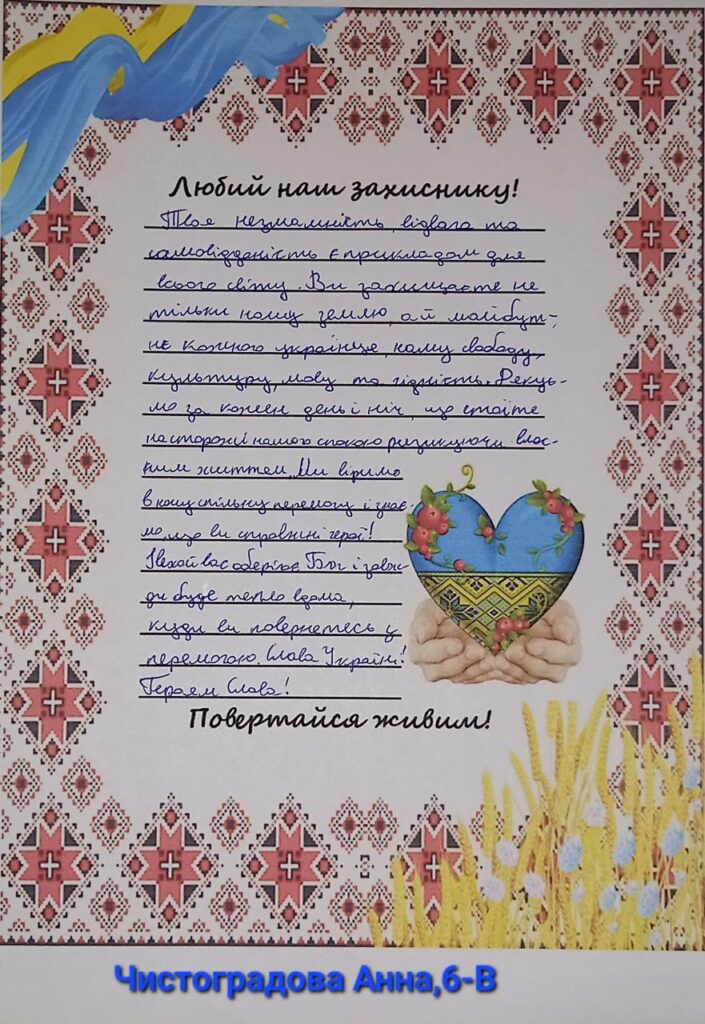 Любий наш захиснику!
Твоя незламність, відвага та
самовідданість є прикладом для
всього світу. Ви захищаєте не
тільки нашу землю, а й майбут-
нє кожного українця, нашу свободу,
культуру, мову та гідність. Дякує-
мо за кожен день і ніч, що стоїте
на сторожі нашого спокою ризикуючи влас-
ним життям. Ми віримо
в нашу спільну перемогу і знає
мо, що ви справжні герої!
Нехай вас оберігає Бог і завж
ди буде тепло вдома,
куди ви повернетесь у
перемогою. Слава Україні!
Героям Слава!
Повертайся живим!
Чистоградова Анна,6-В